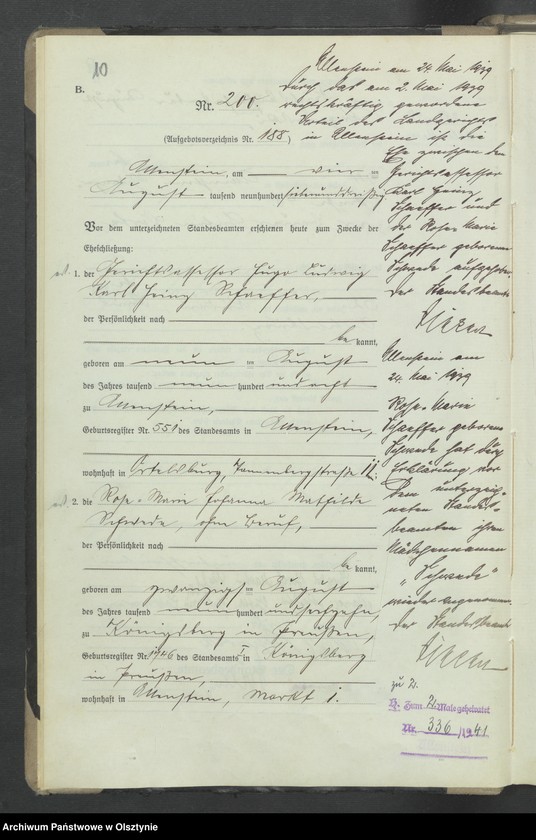 10
B.
Nr. 200.
(Aufgebotsverzeichnis Nr. 188.)
Allenstein, am — vier ten
August tausend neunhundert siebenunddreißig
Vor dem unterzeichneten Standesbeamten erschienen heute zum Zwecke der
Eheschließung:
1. der Gerichtsassessor Hugo Ludwig
Karl Heinz Schaeffer,
der Persönlichkeit nach
be kannt,
geboren am neun ten August
des Jahres tausend neun hundert und acht
zu Allenstein,
Geburtsregister Nr. 551 des Standesamts in Allenstein,
wohnhaft in Ortelsburg, Tannenbergstraße 11.
2. die Rose-Marie Johanna Mathilde
Schwede, ohne Beruf,
der Persönlichkeit nach
be kannt,
geboren am zwanzigsten August
des Jahres tausend neun hundert und sechzehn,
zu Königsberg in Preußen,
Geburtsregister Nr. 1946 des Standesamts I in Königsberg
in Preußen,
wohnhaft in Allenstein, Markt 1.
Allenstein am 24. Mai 1939
Durch das am 2. Mai 1939
rechtskräftig gewordene
Urteil des Landgerichts
in Allenstein ist die
Ehe zwischen dem
Gerichtsassessor
Karl Heinz
Schaeffer und
der Rose-Marie
Schaeffer geborenen
Schwede aufgehoben.
Der Standesbeamte
Allenstein am
24. Mai 1939
Rose-Marie
Schaeffer geborene
Schwede hat durch
Erklärung vor
dem unterzeich-
neten Standes-
beamten ihren
Mädchennamen
„Schwede"
wieder angenommen.
Der Standesbeamte
zu 2.
Zum 2. Male geheiratet
Nr. 336/1941
Archiwum Państwowe w Olsztynie